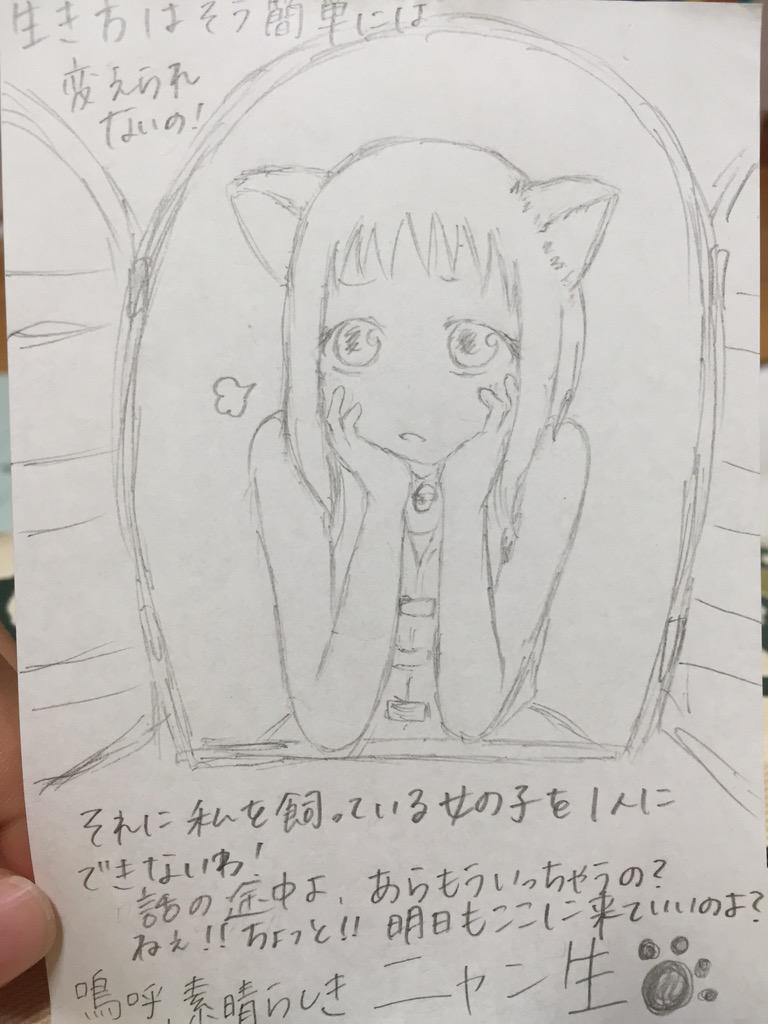 生き方はそう簡単には
変えられ
ないの!
それに私を飼っている女の子を1人に
できないわ!
話の途中よ、あらもういっちゃうの?
ねぇ!!ちょっと!! 明日もここに来ていいのよ?
嗚呼、素晴らしきニャン生